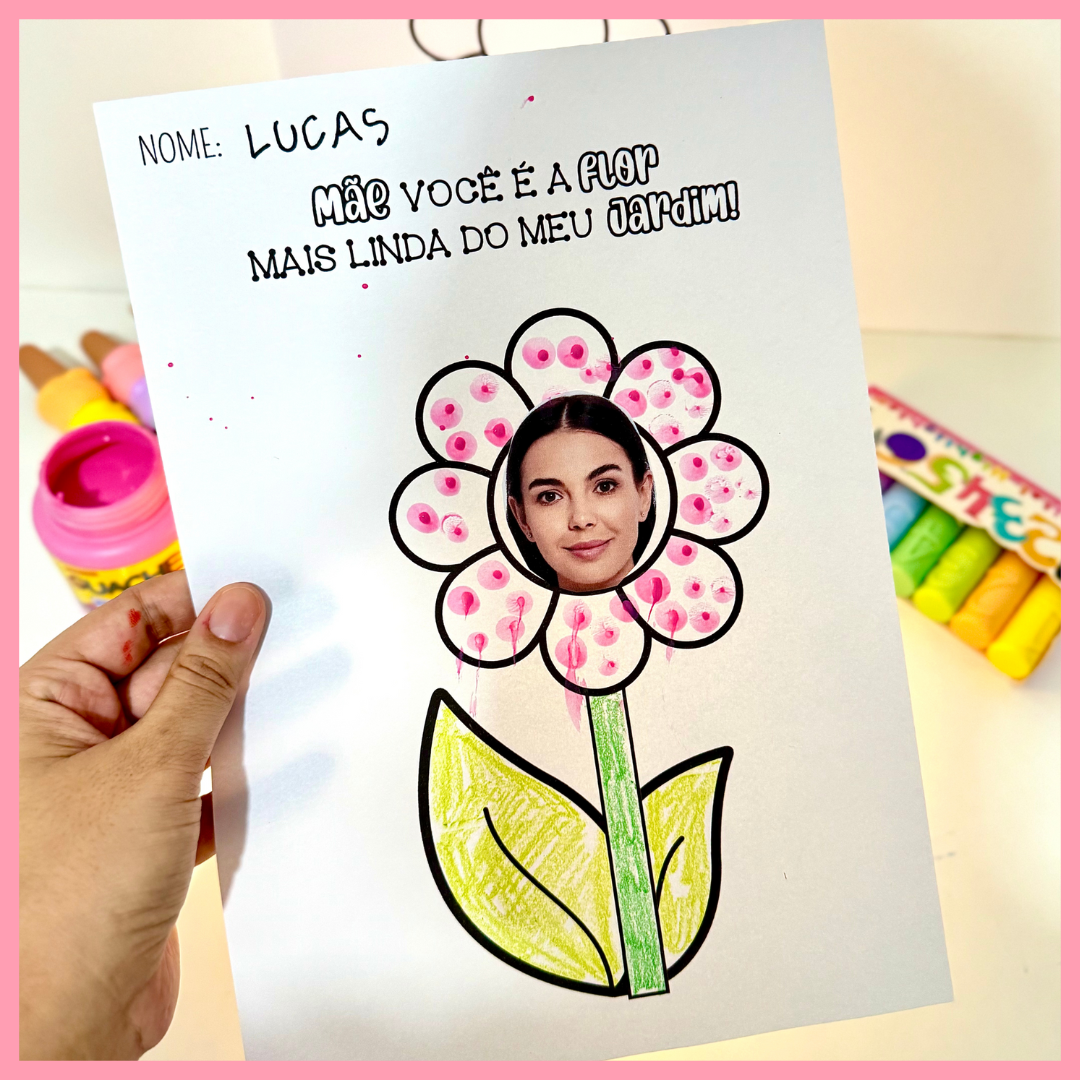 NOME: LUCAS
MÃE VOCÊ É A FLOR
MAIS LINDA DO MEU JARDIM!
GUACHE